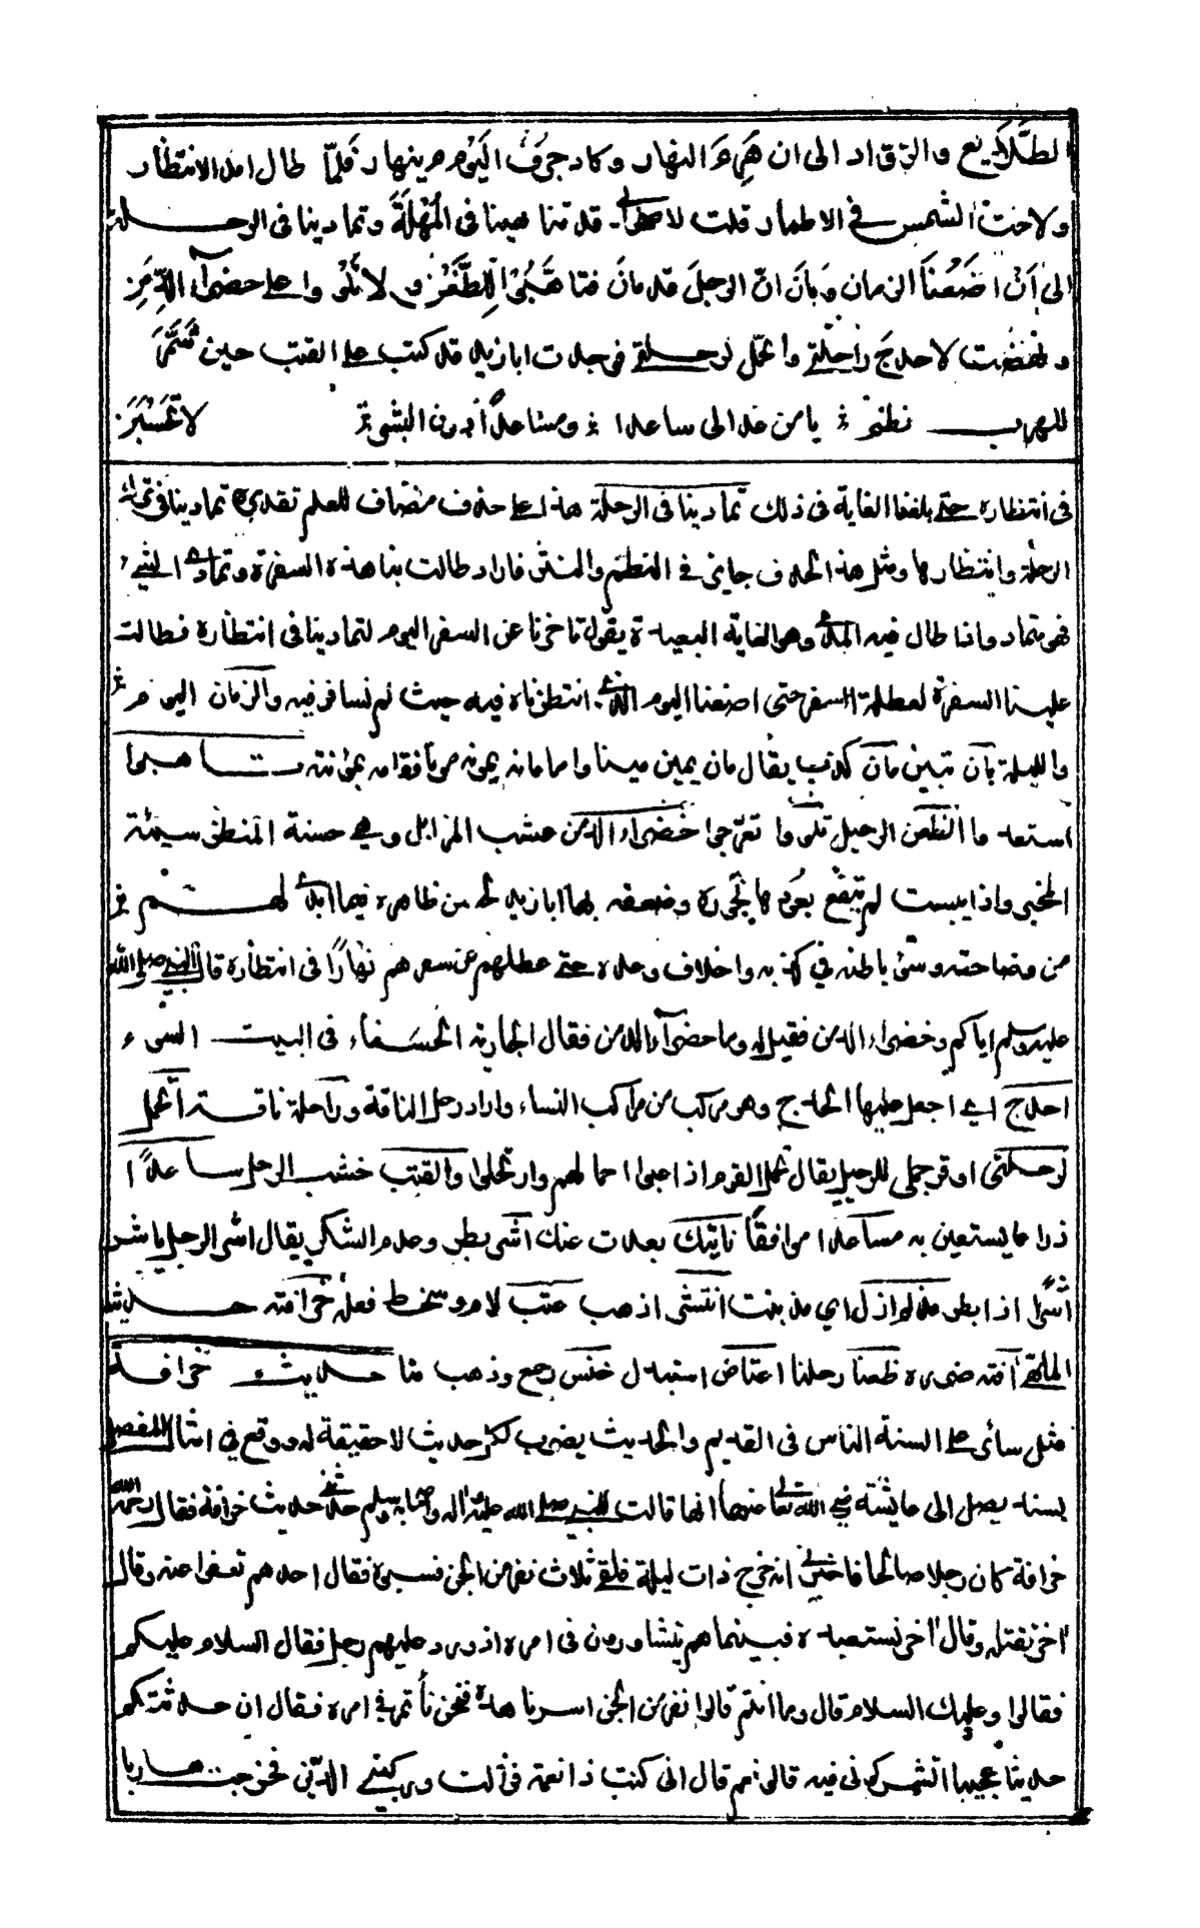 الطَّلَائِع والروّاد الى ان هَرِمَ النهار وكاد جرف اليَوْم ينهار فَلَمّا طال امد الانتظار
ولاحت الشمس في الاطمار قلت لاصحابي قد تناهينا في المُهْلَةِ وتمادينا في الرحلة
الى اَنْ اَضَعْنَا الزمان وَبَانَ انّ الرجلَ قد مانَ فتاهَّبُوْا لِلظَّعْنِ ولا تَلْوُوا على خضراء الدِّمَنِ
ونهضت لاحدجَ راحلتي واتحمّل لرحلتي فوجدت ابازيد قد كتب على القتب حين شَمَّرَ
للهرب نظم يا من غدا لي ساعدا ومساعداً دون البشر لا تَحْسَبَنْ
في انتظاره حتى بلغنا الغاية في ذلك تمادينا في الرحلة هذا على حذف مضاف للعلم تقديره تمادينا في ترك
الرحلة وانتظارها ومثل هذا الحذف جايز في النظم والنثر فاراد طالت بنا هذه السفرة وتمادى الشيء
فهو متماد واذا طال فيه المدى وهو الغاية البعيدة يقول تاخرنا عن السفر اليوم لتمادينا في انتظاره فطالت
علينا السفرة لعطلة السفر حتى اضعنا اليوم الذي انتظرناه فيه حيث لم نسافر فيه والزمان اليوم
والليلة بان تبين مان كذب يقال مان يمين مينا واما مانه يمونه مونا فقام بمؤنته تاهبوا
استعدوا الظعن الرحيل تلووا تعرّجوا خضراء الدمن عشب المزابل وهي حسنة المنظر سيئة
المخبر واذا يبست لم ينتفع بعودها وصفه بها ابازيد لحسن ظاهره فيما ابدى لهم
من فصاحته وسوء باطنه في كذبه واخلاف وعده حتى عطلهم عن سفرهم نهارًا في انتظاره قال النبي صلى الله
عليه وسلم اياكم وخضراء الدمن فقيل له وما خضراء الدمن فقال الجارية الحسناء في البيت السوء
احدج اي اجعل عليها الحدج وهو مركب من مراكب النساء واراد رحل الناقة وراحلة ناقة اتحمل
لرحلتي اوقر جملي للرحيل يقال تحمل القوم اذا عبوا احمالهم وارتحلوا والقتب خشب الرحل ساعداً
ذراعا يستعين به مساعدا موافقًا نايتك بعدت عنك اشر بطر وعدم الشكر يقال اشر الرجل ياشر
اشرًا اذا بطر مذ لم ازل اي مذ بنت انتشر اذهب عتب لام وسخط فعل خرافته حديثه
الملهي آفته ضرره ظعنا رحلنا اعتاض استبدل خنس رجع وذهب منا حديث خرافة
مثل سائر على السنة الناس في القديم والحديث يضرب لكل حديث لا حقيقة له ووقع في امثال المفضل
بسند يصل الى عايشة رضي الله تعالى عنها انها قالت للنبي صلى الله عليه واله واصحابه وسلم حدثني حديث خرافة فقال رحم الله
خرافة كان رجلا صالحا فاخبرني انه خرج ذات ليلة فلقي ثلاث نفر من الجن فسبوه فقال احدهم نعفوا عنه وقال
اخر نقتله وقال اخر نستعبده فبينما هم يتشاورون في امره اذ ورد عليهم رجل فقال السلام عليكم
فقالوا وعليك السلام قال وما انتم قالوا نفر من الجن اسرنا هذا فنحن نأتمر في امره فقال ان حدثتكم
حديثا عجيبا اتشركوني فيه قالوا نعم قال اني كنت ذا نعمة فزالت وركبني الدين فخرجت هاربا